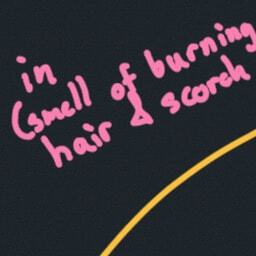 in
(smell of burning
hair & scorch